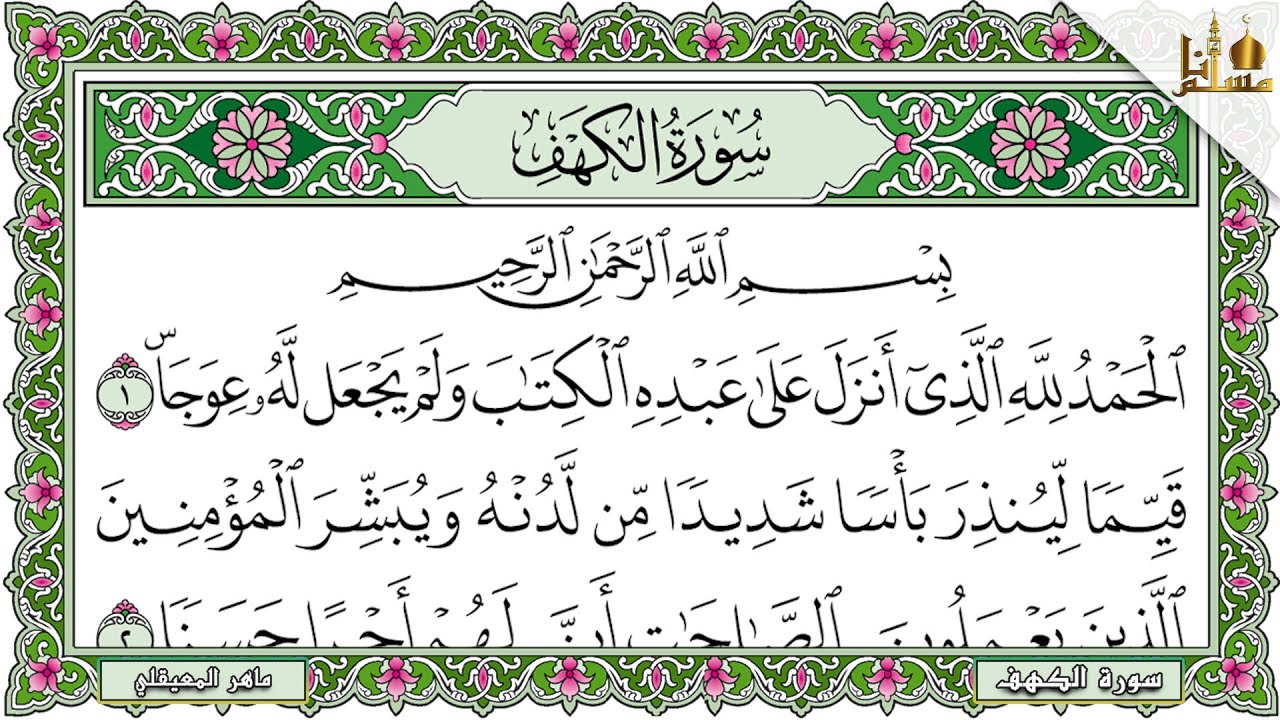 أنا مسلم
سُورَةُ الكَهْفِ
بِسْمِ ٱللَّهِ ٱلرَّحْمَٰنِ ٱلرَّحِيمِ
ٱلْحَمْدُ لِلَّهِ ٱلَّذِىٓ أَنزَلَ عَلَىٰ عَبْدِهِ ٱلْكِتَٰبَ وَلَمْ يَجْعَل لَّهُۥ عِوَجَاۜ ١
قَيِّمًا لِّيُنذِرَ بَأْسًا شَدِيدًا مِّن لَّدُنْهُ وَيُبَشِّرَ ٱلْمُؤْمِنِينَ
ٱلَّذِينَ يَعْمَلُونَ ٱلصَّٰلِحَٰتِ أَنَّ لَهُمْ أَجْرًا حَسَنًا ٢
سورة الكهف
ماهر المعيقلي